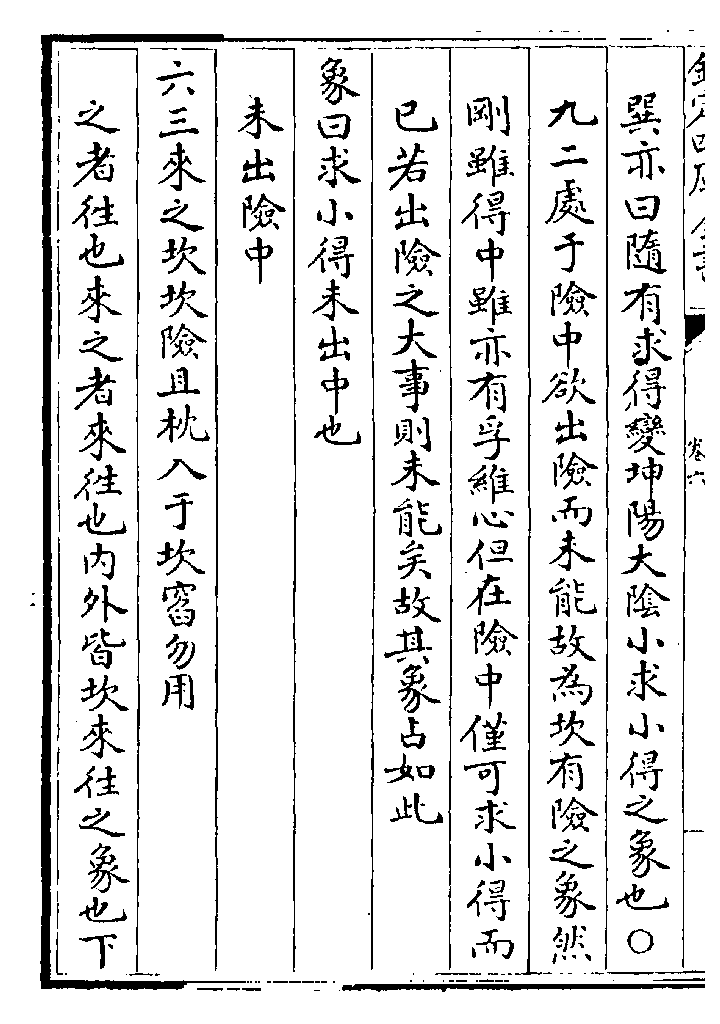 巽亦曰隨有求得變坤陽大隂小求小得之象也○
九二處于險中欲出險而未能故為坎有險之象然
剛雖得中雖亦有孚維心但在險中僅可求小得而
已若出險之大事則未能矣故其象占如此
象曰求小得未出中也
未出險中
六三來之坎坎險且枕入于坎窞勿用
之者徃也來之者來徃也内外皆坎來往之象也下
卷六